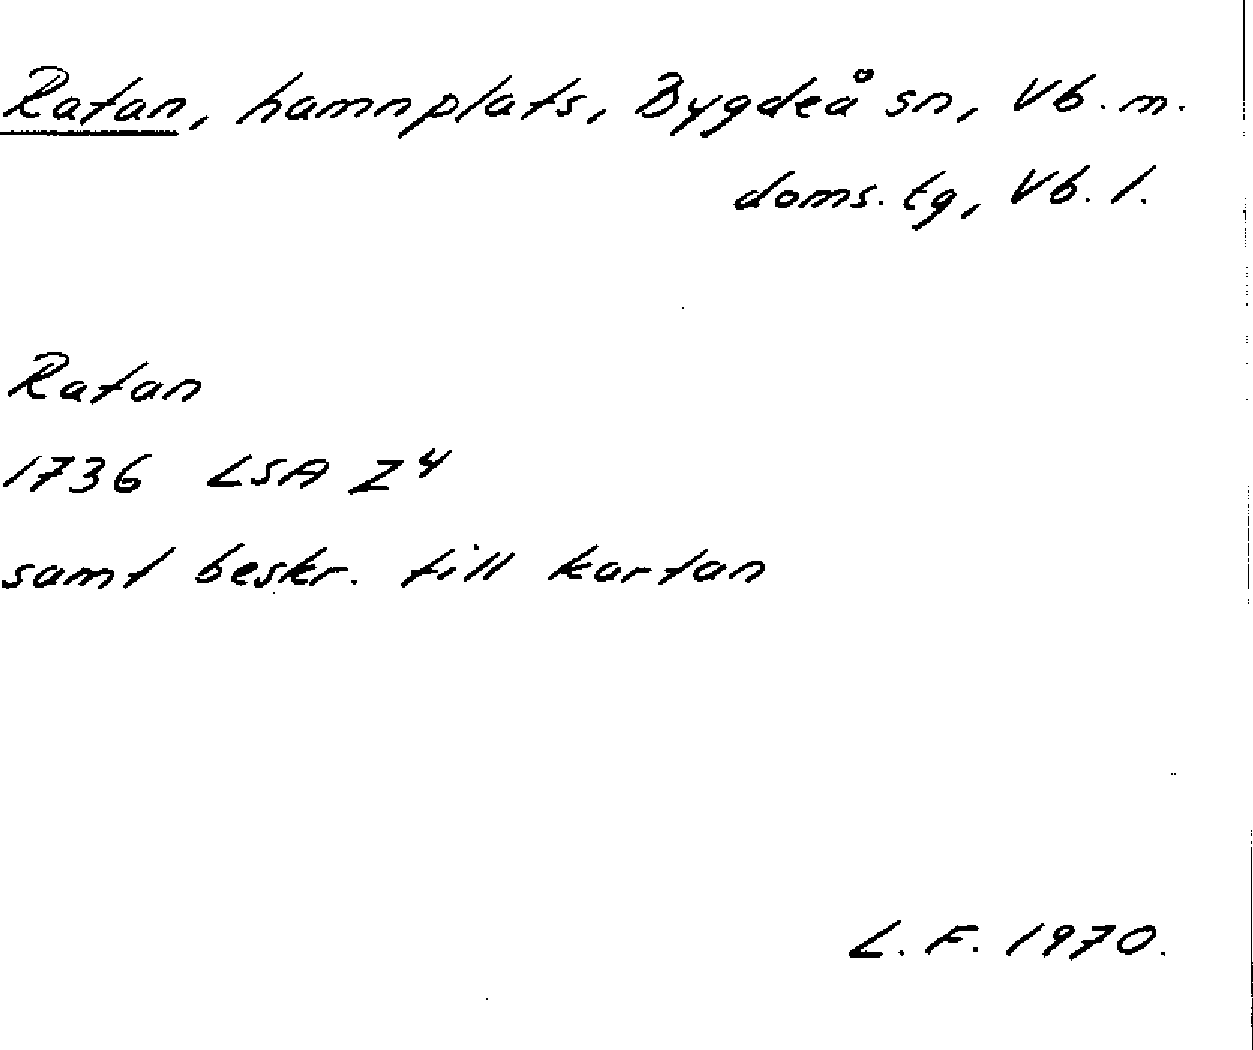 Ratan, hamnplats, Bygdeå sn, Vb. m.
doms. tg, Vb. l.
Ratan
1736 LSA Z⁴
samt beskr. till kartan
L. F. 1970.